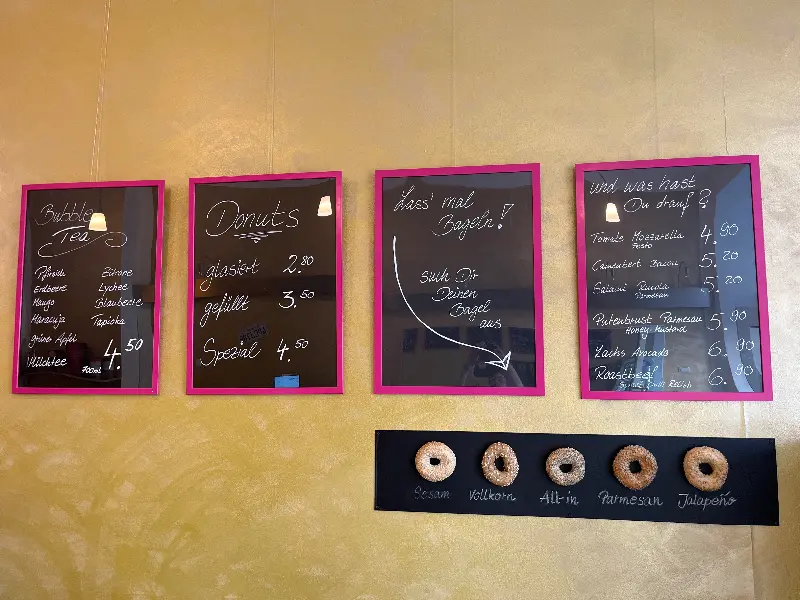 Bubble
Tea
Pfirsich Zitrone
Erdbeere Lychee
Mango Blaubeere
Maracuja Tapioka
grüner Apfel
Milchtee 700ml 4.50
Donuts
glasiert 2.80
gefüllt 3.50
Spezial 4.50
Lass' mal
Bageln!
Such Dir
Deinen
Bagel
aus
Und was hast
Du drauf?
Tomate Mozzarella 4.90
Pesto
Camembert Bacon 5.20
Salami Rucola 5.20
Parmesan
Putenbrust Parmesan 5.90
Honey Mustard
Lachs Avocado 6.90
Roastbeef 6.90
Relish
Sesam Vollkorn All-in Parmesan Jalapeño